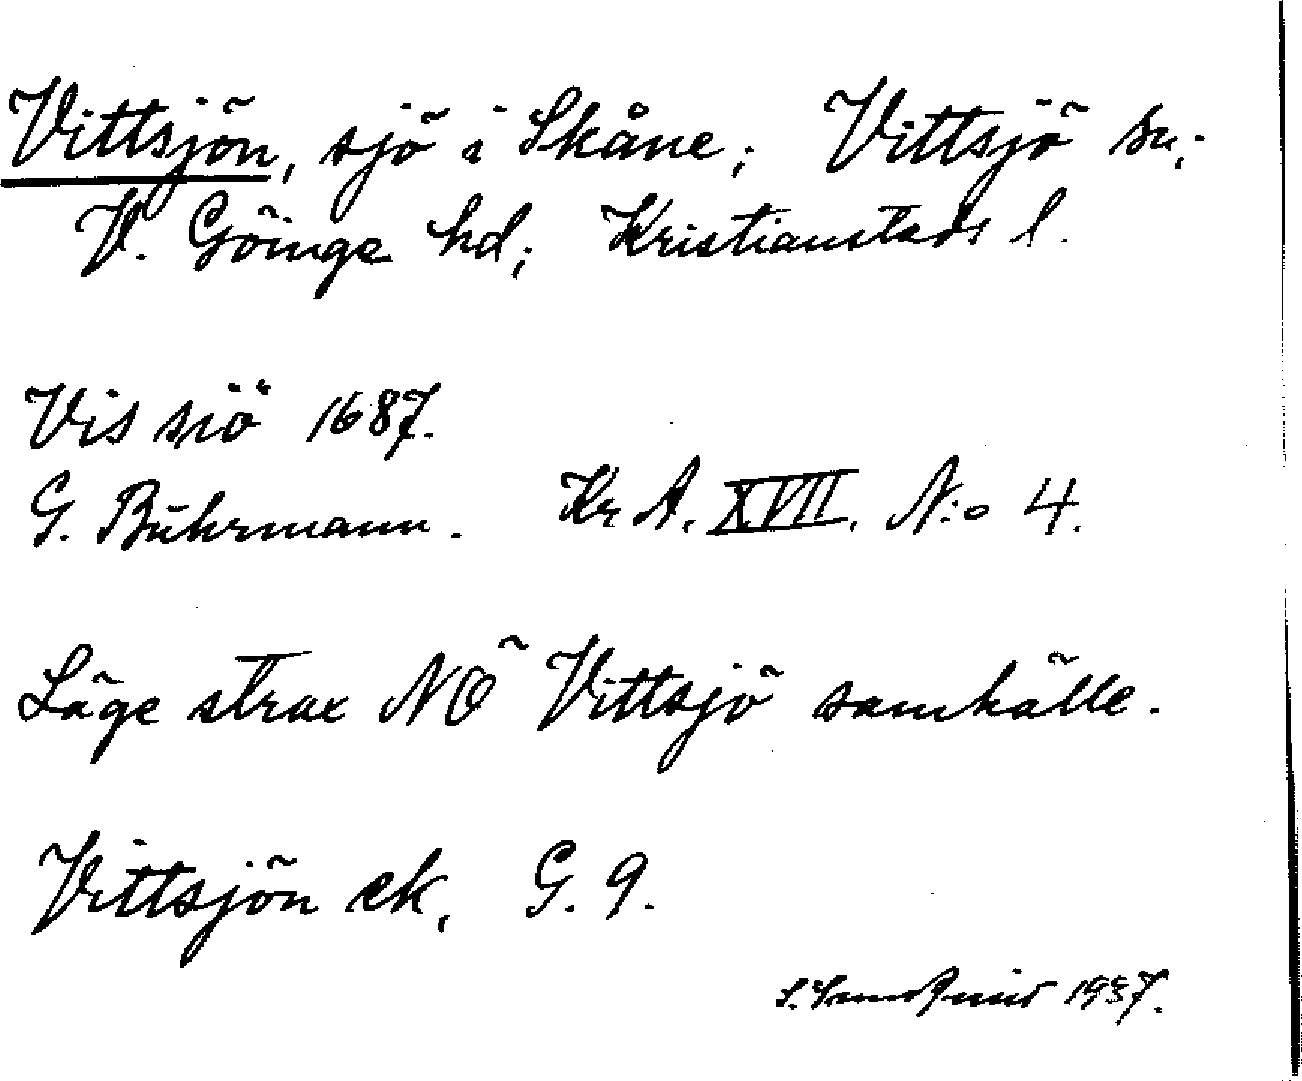 Vittsjön, sjö i Skåne; Vittsjö sn;
V. Göinge hd; Kristianstads l.
Vis siö 1687.
G. Buhrmann. Kr A. XVII. N:o 4.
Läge strax NÖ Vittsjö samhälle.
Vittsjön ek, G. 9.
1937.